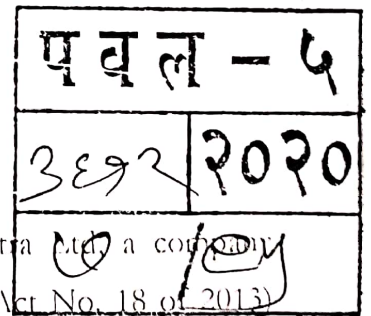 पवल - ५
३६१२ २०२०
tra Ltd, a company
Act No. 18 of 2013)